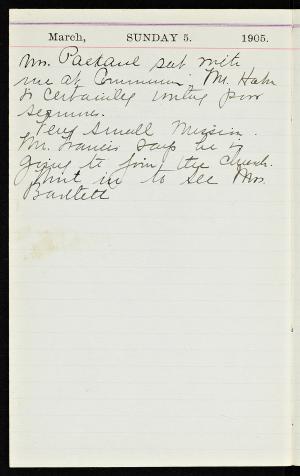 March, SUNDAY 5. 1905.
Mrs. Packard sat with
me at Communion. Mr. Hahn
is certainly writing poor
sermons.
Very small Mission.
Mr. Francis says he is
going to join the Church.
Went in to see Mrs.
Bartlett